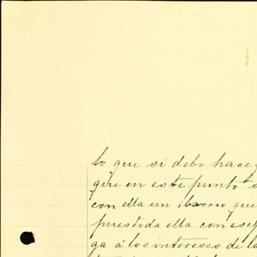 lo que si debo hace
que en este punto
con ella un barrio que
puestoda ella con ese
ga á los intereses de l